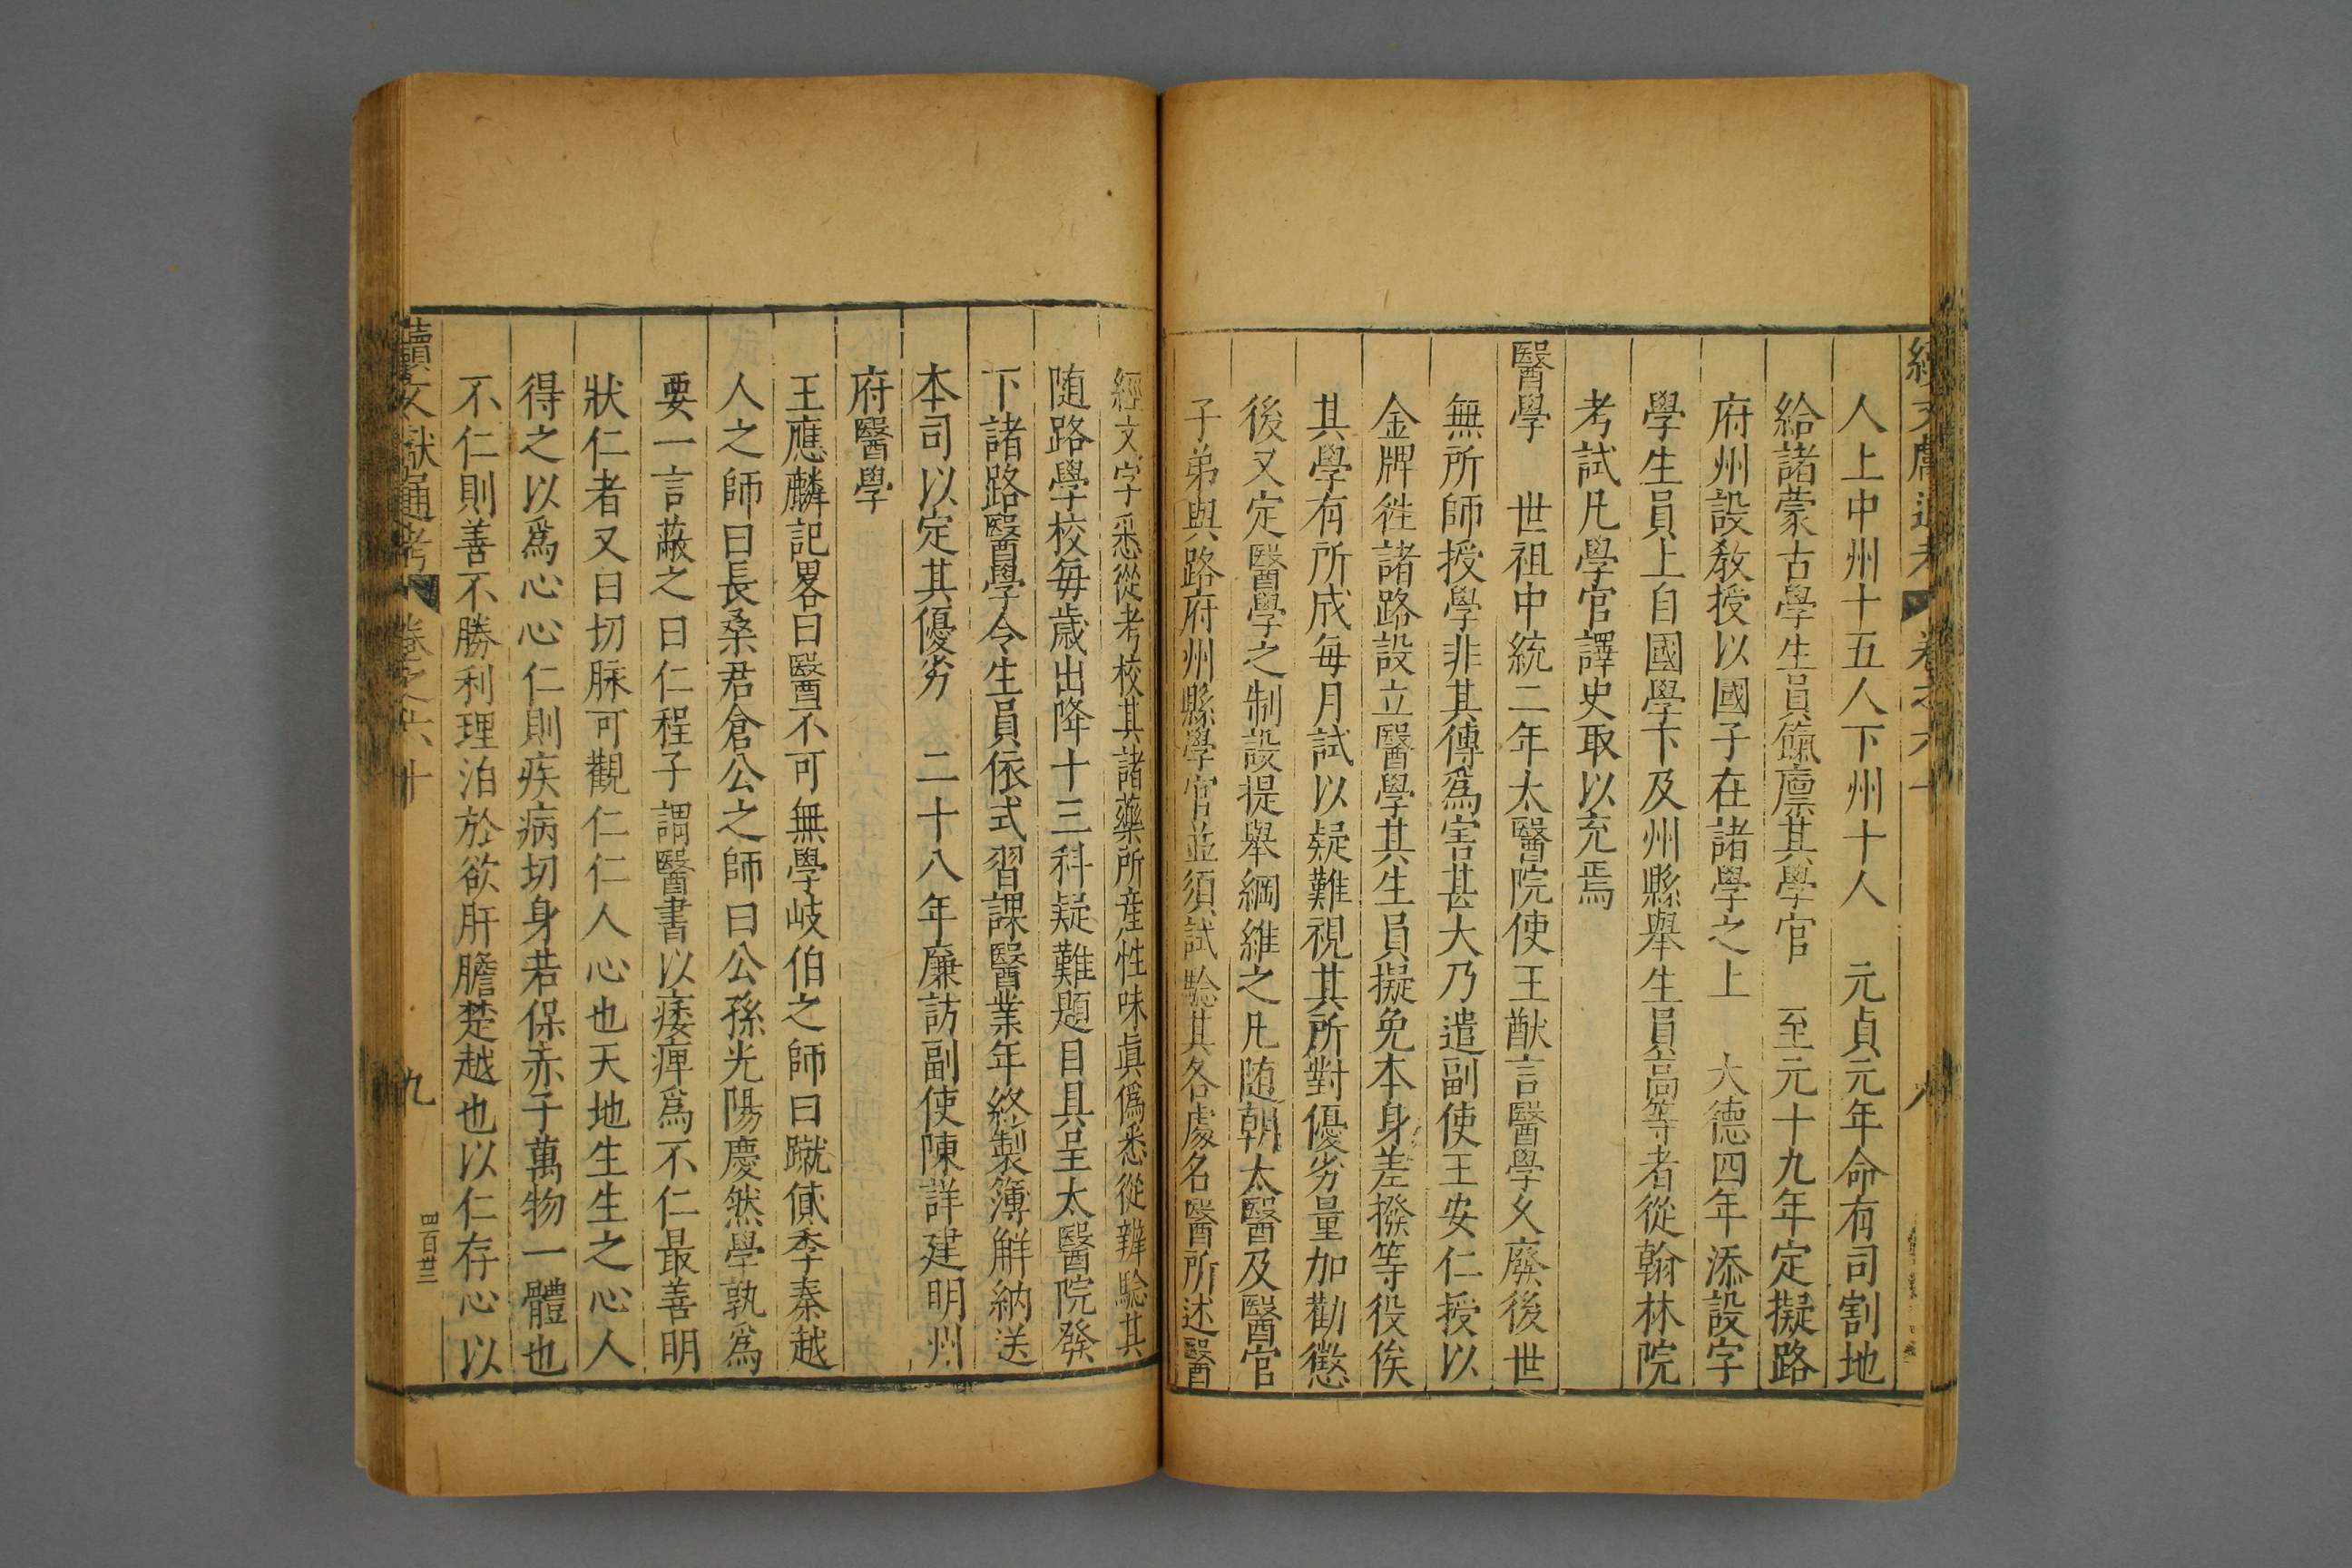 人上中州十五人下州十人　元貞元年命有司割地
給諸蒙古學生員餼廪其學官　至元十九年定擬路
府州設教授以國子在諸學之上　大德四年添設字
學生員上自國學下及州縣舉生員高等者從翰林院
考試凡學官譯史取以充焉
醫學　世祖中統二年太醫院使王猷言醫學久廢後世
無所師授學非其傳爲害甚大乃遣副使王安仁授以
金牌徃諸路設立醫學其生員擬免本身差撥等役俟
其學有所成每月試以疑難視其所對優劣量加勸懲
後又定醫學之制設提舉綱維之凡随朝太醫及醫官
子弟與路府州縣學官並須試驗其各處名醫所述醫
經文字悉從考校其諸藥所産性味眞僞悉從辨驗其
随路學校每歲出降十三科疑難題目具呈太醫院發
下諸路醫學令生員依式習課醫業年終製簿解納送
本司以定其優劣　二十八年廉訪副使陳詳建明州
府醫學
王應麟記畧曰醫不可無學岐伯之師曰蹴貸季秦越
人之師曰長桑君倉公之師曰公孫光陽慶然學孰爲
要一言蔽之曰仁程子謂醫書以痿痺爲不仁最善明
狀仁者又曰切脉可觀仁仁人心也天地生生之心人
得之以爲心心仁則疾病切身若保赤子萬物一體也
不仁則善不勝利理汨於欲肝膽楚越也以仁存心以
續文獻通考　卷之六十　九
四百卅三